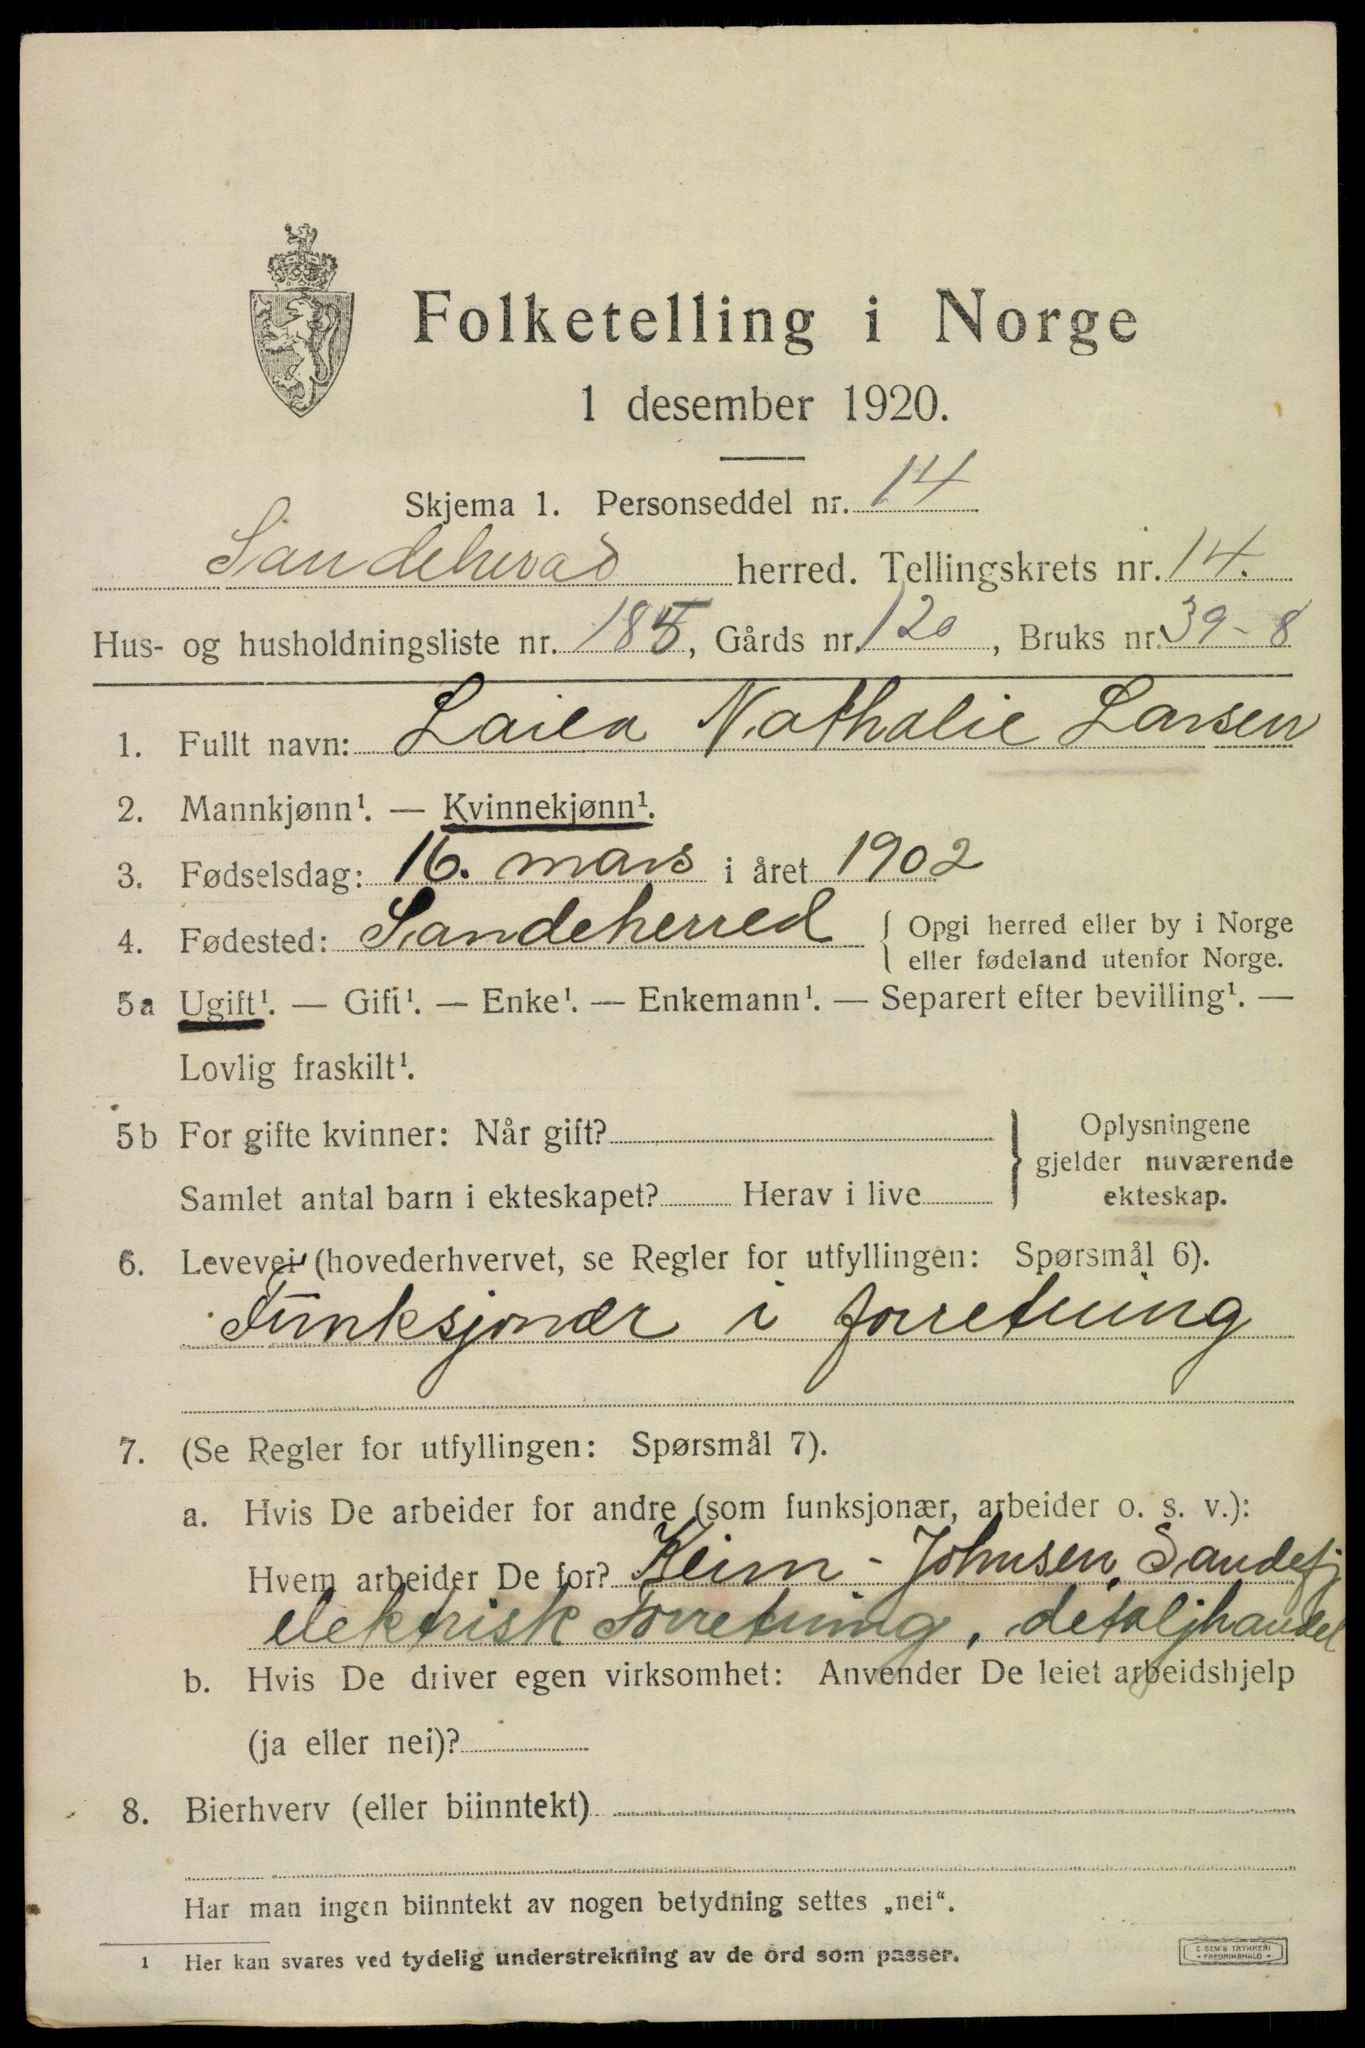 Folketelling i Norge
1 desember 1920.
Skjema 1. Personseddel nr. 14
Sandeherad herred. Tellingskrets nr. 14.
Hus- og husholdningsliste nr. 185, Gårds nr. 120, Bruks nr. 39-8
1. Fullt navn: Laila Nathalie Larsen
2. Mannkjønn¹. — Kvinnekjønn¹.
3. Fødselsdag: 16. mars i året 1902
4. Fødested: Sandeherred { Opgi herred eller by i Norge
eller fødeland utenfor Norge.
5a Ugift¹. — Gift¹. — Enke¹. — Enkemann¹. — Separert efter bevilling¹. —
Lovlig fraskilt¹.
5b For gifte kvinner: Når gift? } Oplysningene
gjelder nuværende
Samlet antal barn i ekteskapet? Herav i live ekteskap.
6. Levevei (hovederhvervet, se Regler for utfyllingen: Spørsmål 6).
Funksjonær i forretning
7. (Se Regler for utfyllingen: Spørsmål 7).
a. Hvis De arbeider for andre (som funksjonær, arbeider o. s. v.):
Hvem arbeider De for? Keim - Johnsen, Sandefj
elektrisk Forretning, detaljhandel
b. Hvis De driver egen virksomhet: Anvender De leiet arbeidshjelp
(ja eller nei)?
8. Bierhverv (eller biinntekt)
Har man ingen biinntekt av nogen betydning settes „nei“.
1 Her kan svares ved tydelig understrekning av de ord som passer.
E. SEM'S TRYKKERI
• FREDRIKSHALD •